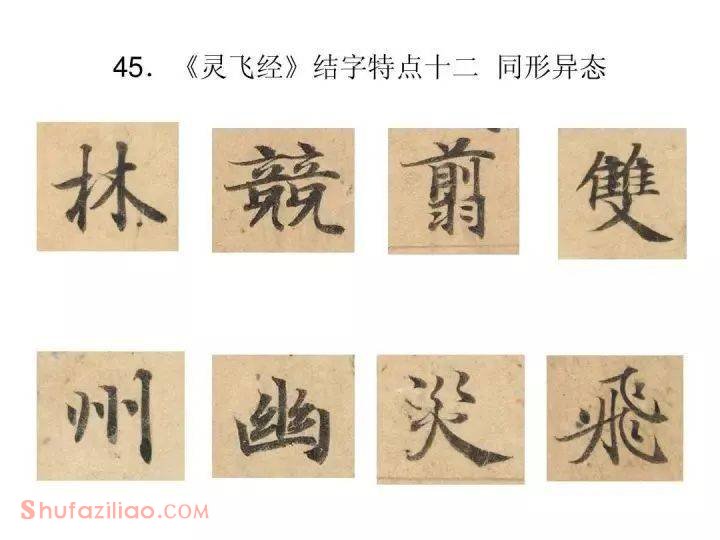 45. 《灵飞经》结字特点十二 同形异态
林 競 翦 雙
州 幽 災 飛
Shufaziliao.COM